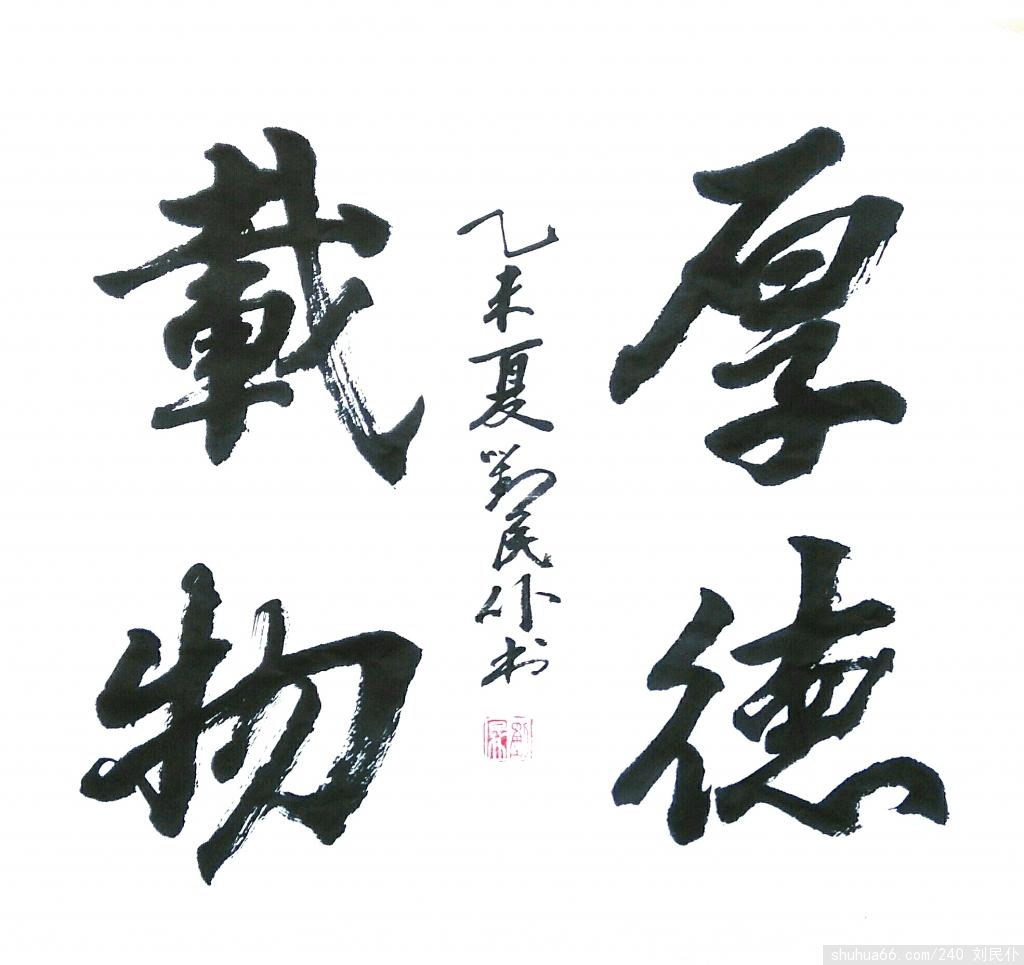 厚德
載物
乙未夏劉民仆书
shuhua66.com/240 刘民仆